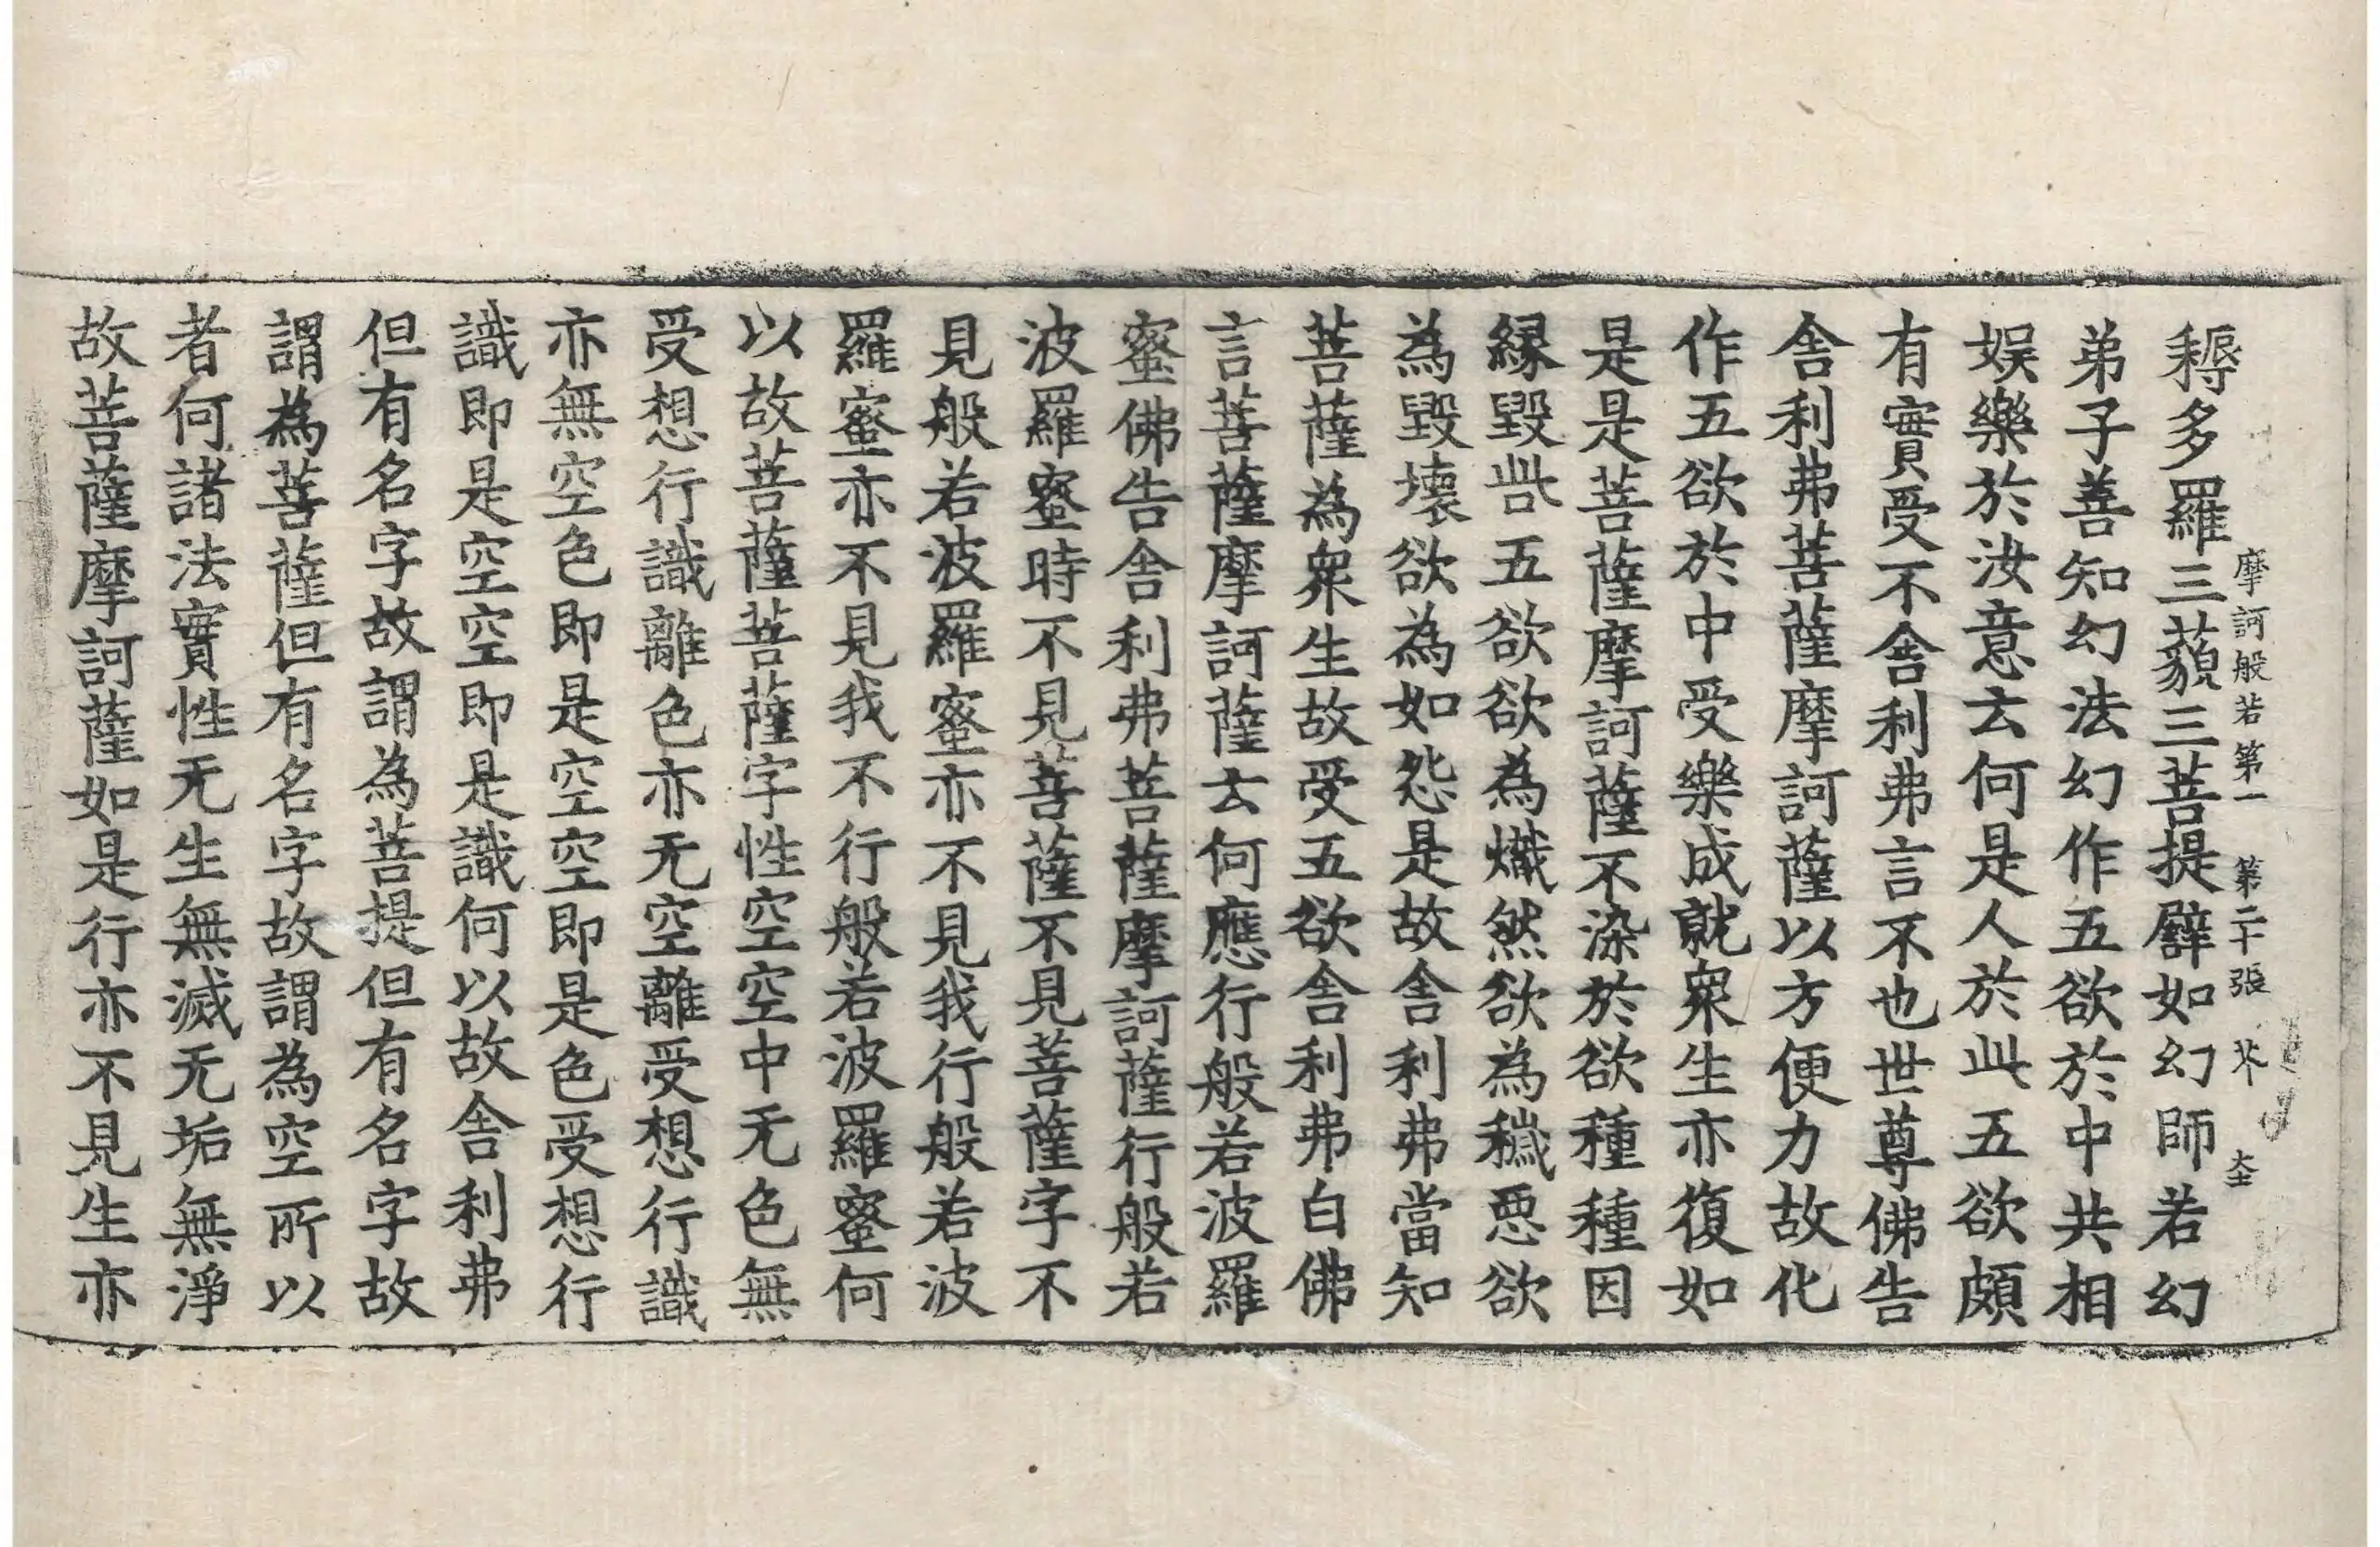 摩訶般若第一 第二十張 芥 大王
耨多羅三藐三菩提譬如幻師若幻
弟子善知幻法幻作五欲於中共相
娛樂於汝意云何是人於此五欲頗
有實受不舍利弗言不也世尊佛告
舍利弗菩薩摩訶薩以方便力故化
作五欲於中受樂成就衆生亦復如
是是菩薩摩訶薩不染於欲種種因
緣毀呰五欲欲為熾然欲為穢惡欲
為毀壞欲為如怨是故舍利弗當知
菩薩為衆生故受五欲舍利弗白佛
言菩薩摩訶薩云何應行般若波羅
蜜佛告舍利弗菩薩摩訶薩行般若
波羅蜜時不見菩薩不見菩薩字不
見般若波羅蜜亦不見我行般若波
羅蜜亦不見我不行般若波羅蜜何
以故菩薩菩薩字性空空中无色無
受想行識離色亦无空離受想行識
亦無空色即是空空即是色受想行
識即是空空即是識何以故舍利弗
但有名字故謂為菩提但有名字故
謂為菩薩但有名字故謂為空所以
者何諸法實性无生無滅无垢無淨
故菩薩摩訶薩如是行亦不見生亦